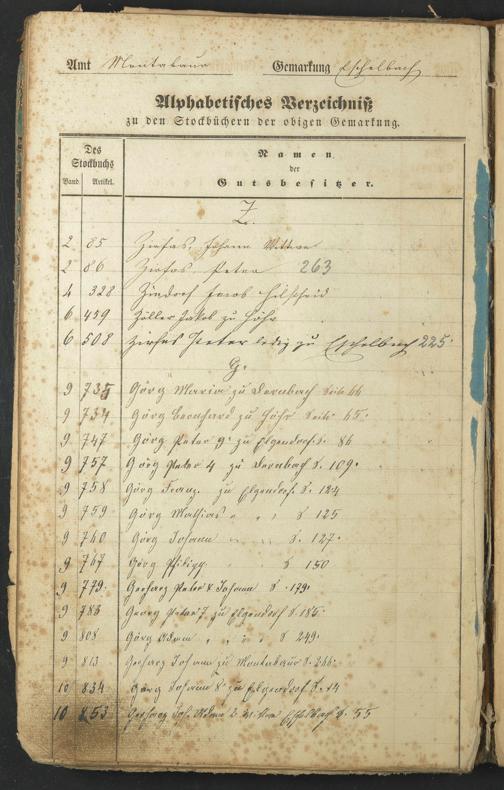 Amt Montabaur Gemarkung Eschelbach
Alphabetisches Verzeichniß
zu den Stockbüchern der obigen Gemarkung.
Des Stockbuchs
Band. Artikel.
Namen
der
Gutsbesitzer.
Z.
2 85 Zirfas, Johann Wittwe
2 86 Zirfas Peter 263
4 328 Zindorf Jacob Hilscheid
6 459 Zöller Jakob zu Höhr
6 508 Zirfas Peter ledig zu Eschelbach 225
G.
9 735 Görg Maria zu Dernbach Seite 44
9 734 Görg Bernhard zu Höhr Seite 65.
9 747 Görg Peter 9. zu Elgendorf S. 86
9 757 Görg Peter 4 zu Dernbach S. 109.
9 758 Görg Franz. zu Elgendorf. S. 124
9 759 Görg Mathias " " S 125
9 760 Görg Johann " " S. 127.
9 767 Görg Philipp S 150
9 779 Gerharz Peter & Johann S. 179.
9 783 Georg Peter 7. zu Elgendorf S. 185.
9 808 Görg Adam " " " S 249.
9 813 Gerharz Johann zu Montabaur S. 266.
10 834 Görg Johann 8. zu Elgendorf S. 14
10 853 Gerharz Joh. Adam 2. Eschelbach S. 55